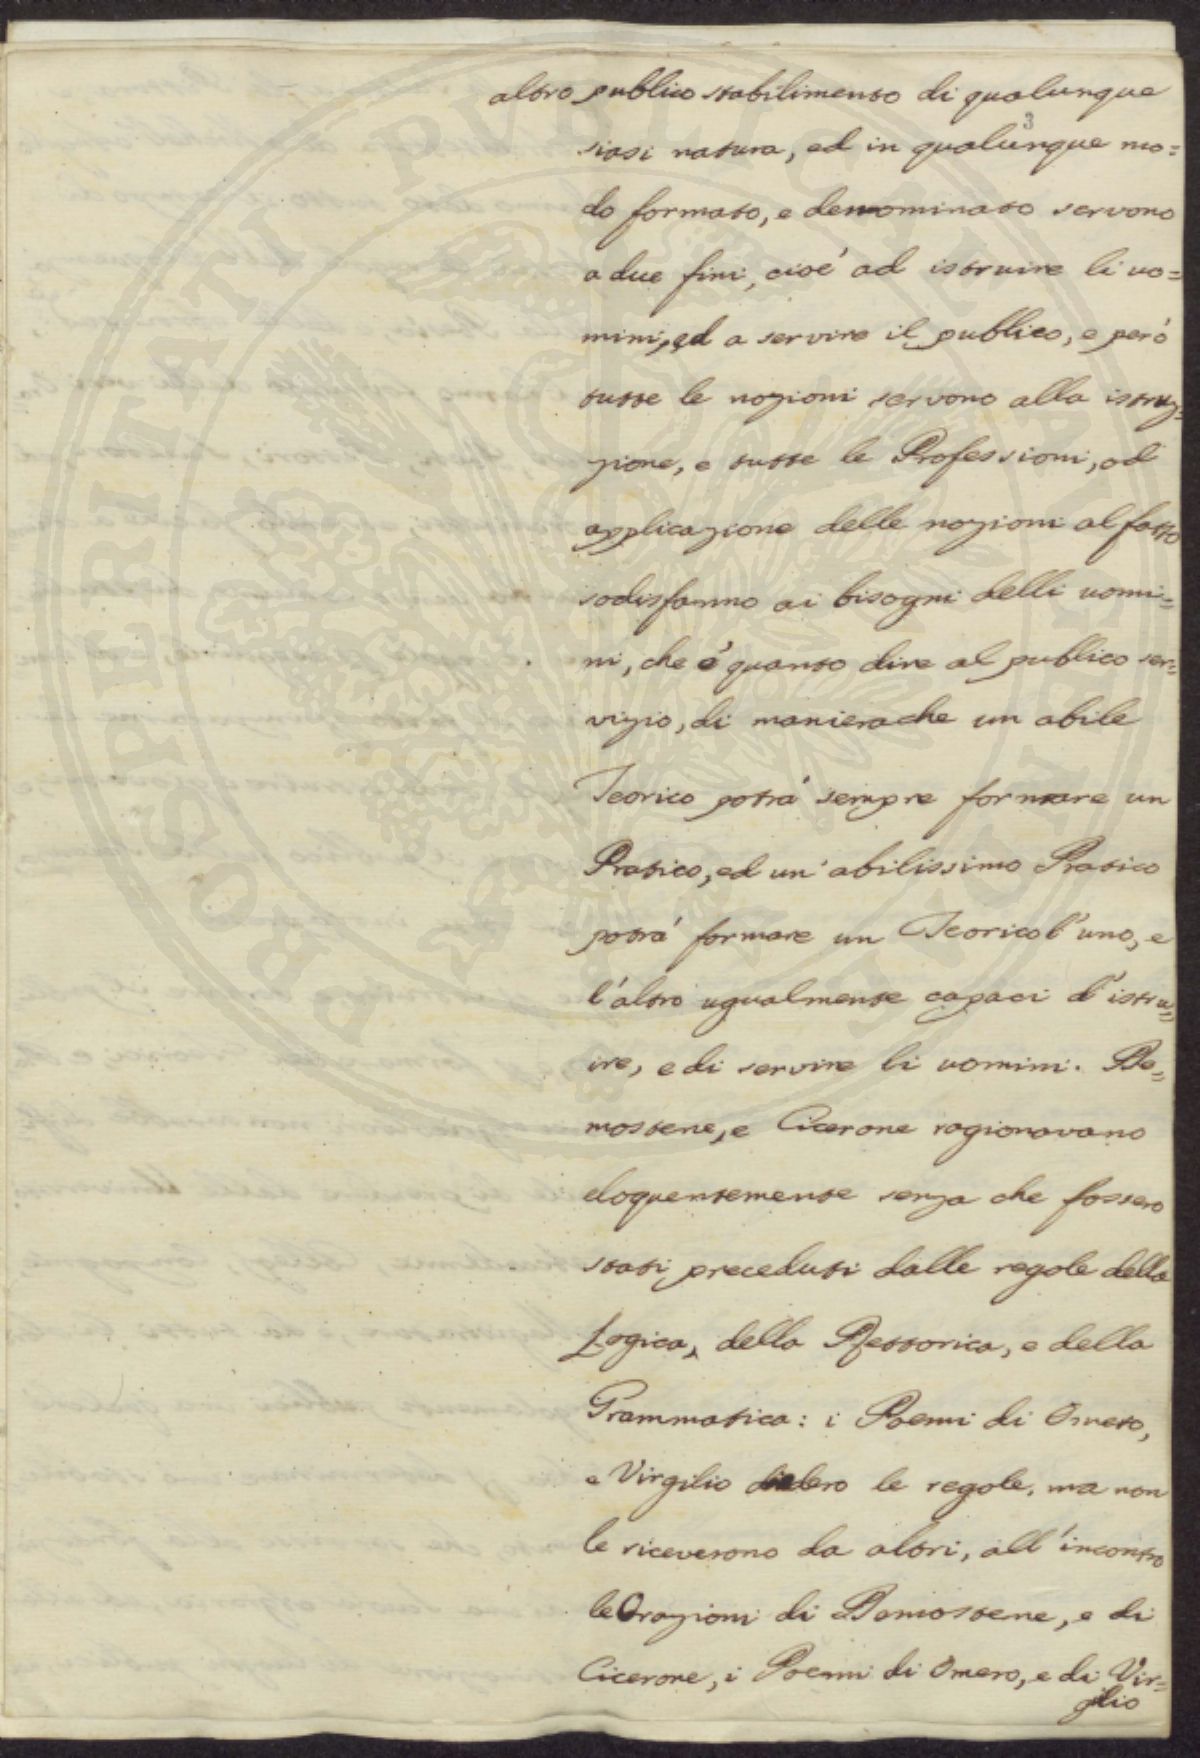 altro publico stabilimento di qualunque
3
siasi natura, ed in qualunque mo=
do formato, e denominato servono
a due fini, cioè ad istruire li uo=
mini, ed a servire il publico, e però
tutte le nozioni servono alla istru=
zione, e tutte le Professioni, od
applicazione delle nozioni al fatto
sodisfanno ai bisogni delli uomi=
ni, che è quanto dire al publico ser=
vizio, di manierache un abile
Teorico potrà sempre formare un
Pratico, ed un' abilissimo Pratico
potrà formare un Teorico l'uno, e
l'altro ugualmente capaci d'istru=
ire, e di servire li uomini. De=
mostene, e Cicerone ragionavano
eloquentemente senza che fossero
stati preceduti dalle regole della
Logica, della Rettorica, e della
Grammatica: i Poemi di Omero,
e Virgilio diedero le regole, ma non
le riceverono da altri, all'incontro
le Orazioni di Demostene, e di
Cicerone, i Poemi di Omero, e di Vir=
gilio
PROSPERITATI PUBLICAE